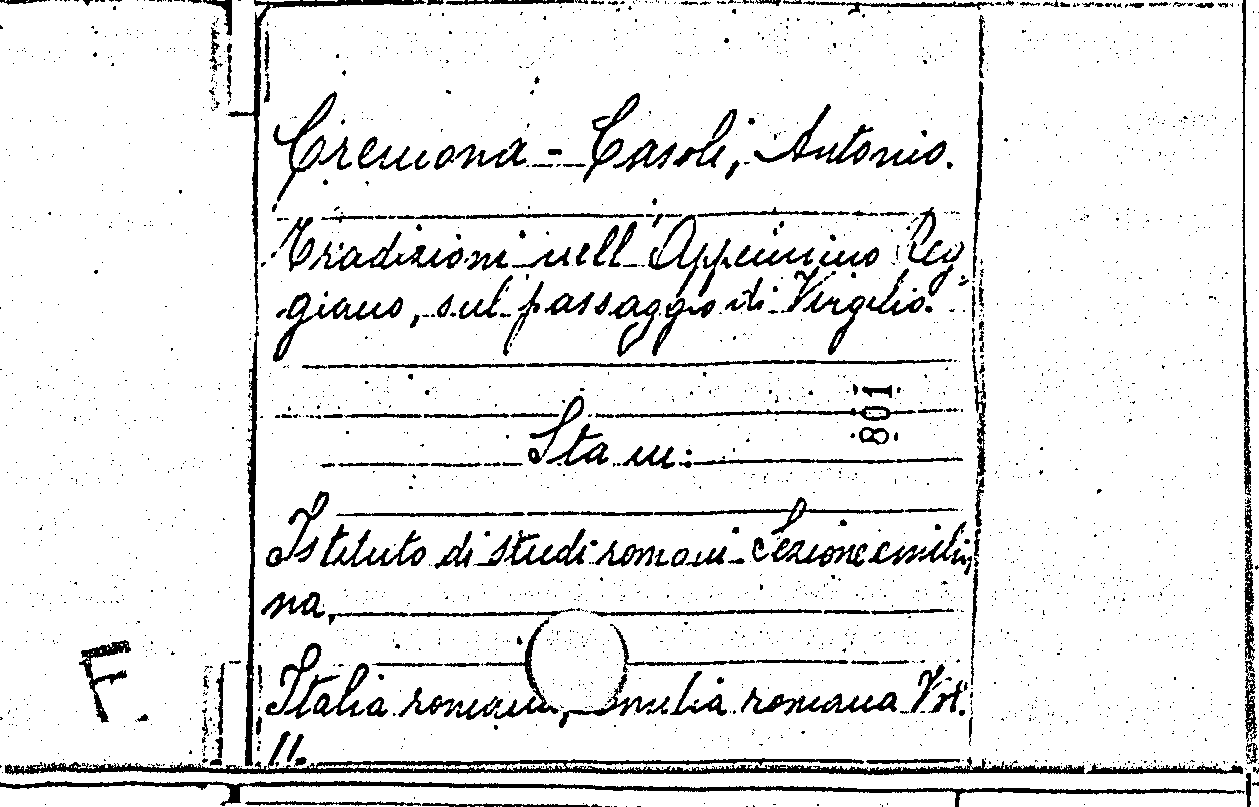 Cremona - Casoli, Antonio.
Tradizioni nell'Appennino Reg-
giano, sul passaggio di Virgilio.
801
Sta in:
Istituto di studi romani - Sezione emilia-
na,
Italia romana, Emilia romana Vol.
II.
F.